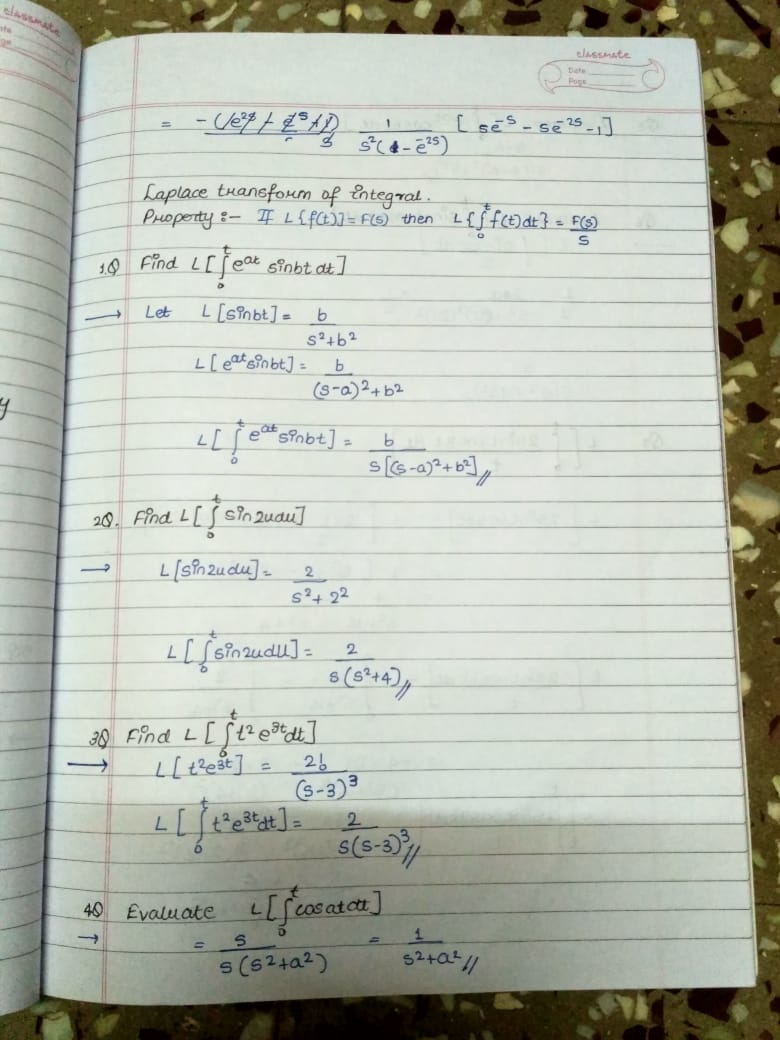 classmate
classmate
Date
Page
= 1/(s²(1-e⁻²ˢ)) [se⁻ˢ - se⁻²ˢ - 1]
Laplace transform of integral.
Property :- If L{f(t)} = F(s) then L{∫₀ᵗ f(t) dt} = F(s)/s
1.Q Find L[∫₀ᵗ eᵃᵗ sinbt dt]
→ Let L[sinbt] = b/(s²+b²)
L[eᵃᵗ sinbt] = b/((s-a)²+b²)
L[∫₀ᵗ eᵃᵗ sinbt] = b/(s[(s-a)²+b²]) //
2Q. Find L[∫₀ᵗ sin2udu]
→ L[sin2udu] = 2/(s²+2²)
L[∫₀ᵗ sin2udu] = 2/(s(s²+4)) //
3Q Find L[∫₀ᵗ t² e³ᵗ dt]
→ L[t²e³ᵗ] = 2!/(s-3)³
L[∫₀ᵗ t²e³ᵗdt] = 2/(s(s-3)³) //
4Q Evaluate L[∫₀ᵗ cosatdt]
→ = s/(s(s²+a²)) = 1/(s²+a²) //